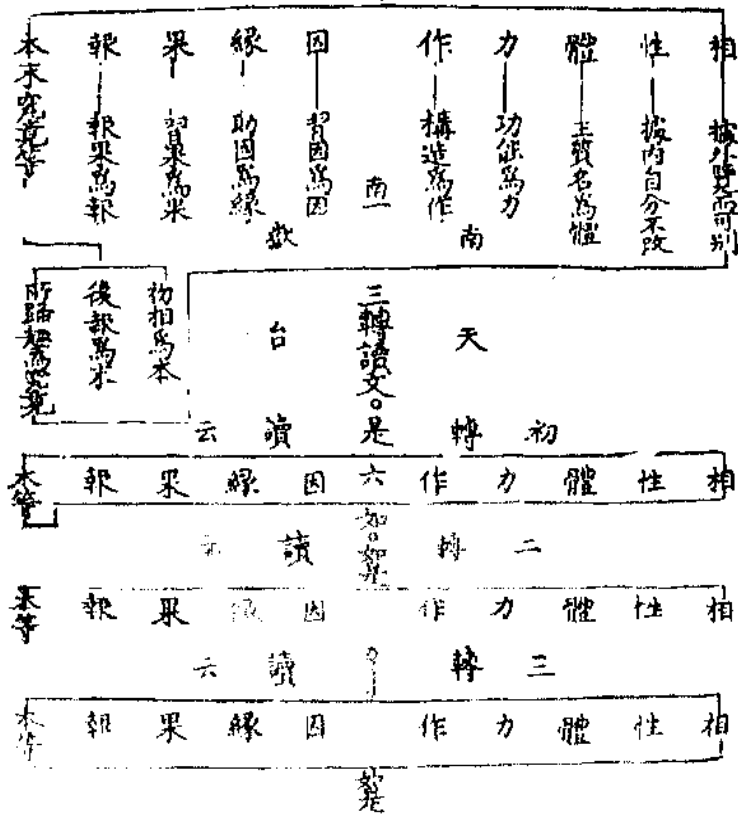 相 據外覽而可別
性 據內自分不改
體 主質名爲體
力 功能爲力
作 構造爲作
因 習因爲因
緣 助因爲緣
果 習果爲果
報 報果爲報
本末究竟等
南嶽
初相爲本
後報爲末
所歸趣爲究竟
天台
三轉讀文。是六如。如是
初轉讀云
相性體力作因緣果報
二轉讀云
相性體力作因緣果報
三轉讀云
相性體力作因緣果報
本等
如是